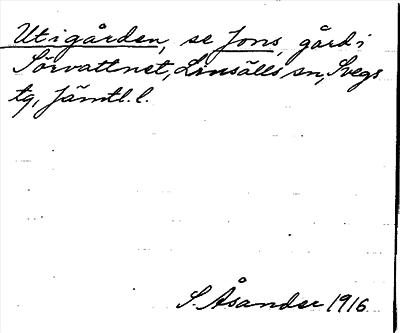 Utigården, se Jons, gård i
Sörvattnet, Linsälls sn, Svegs
tg, Jämtl. l.
S. Åsander 1916